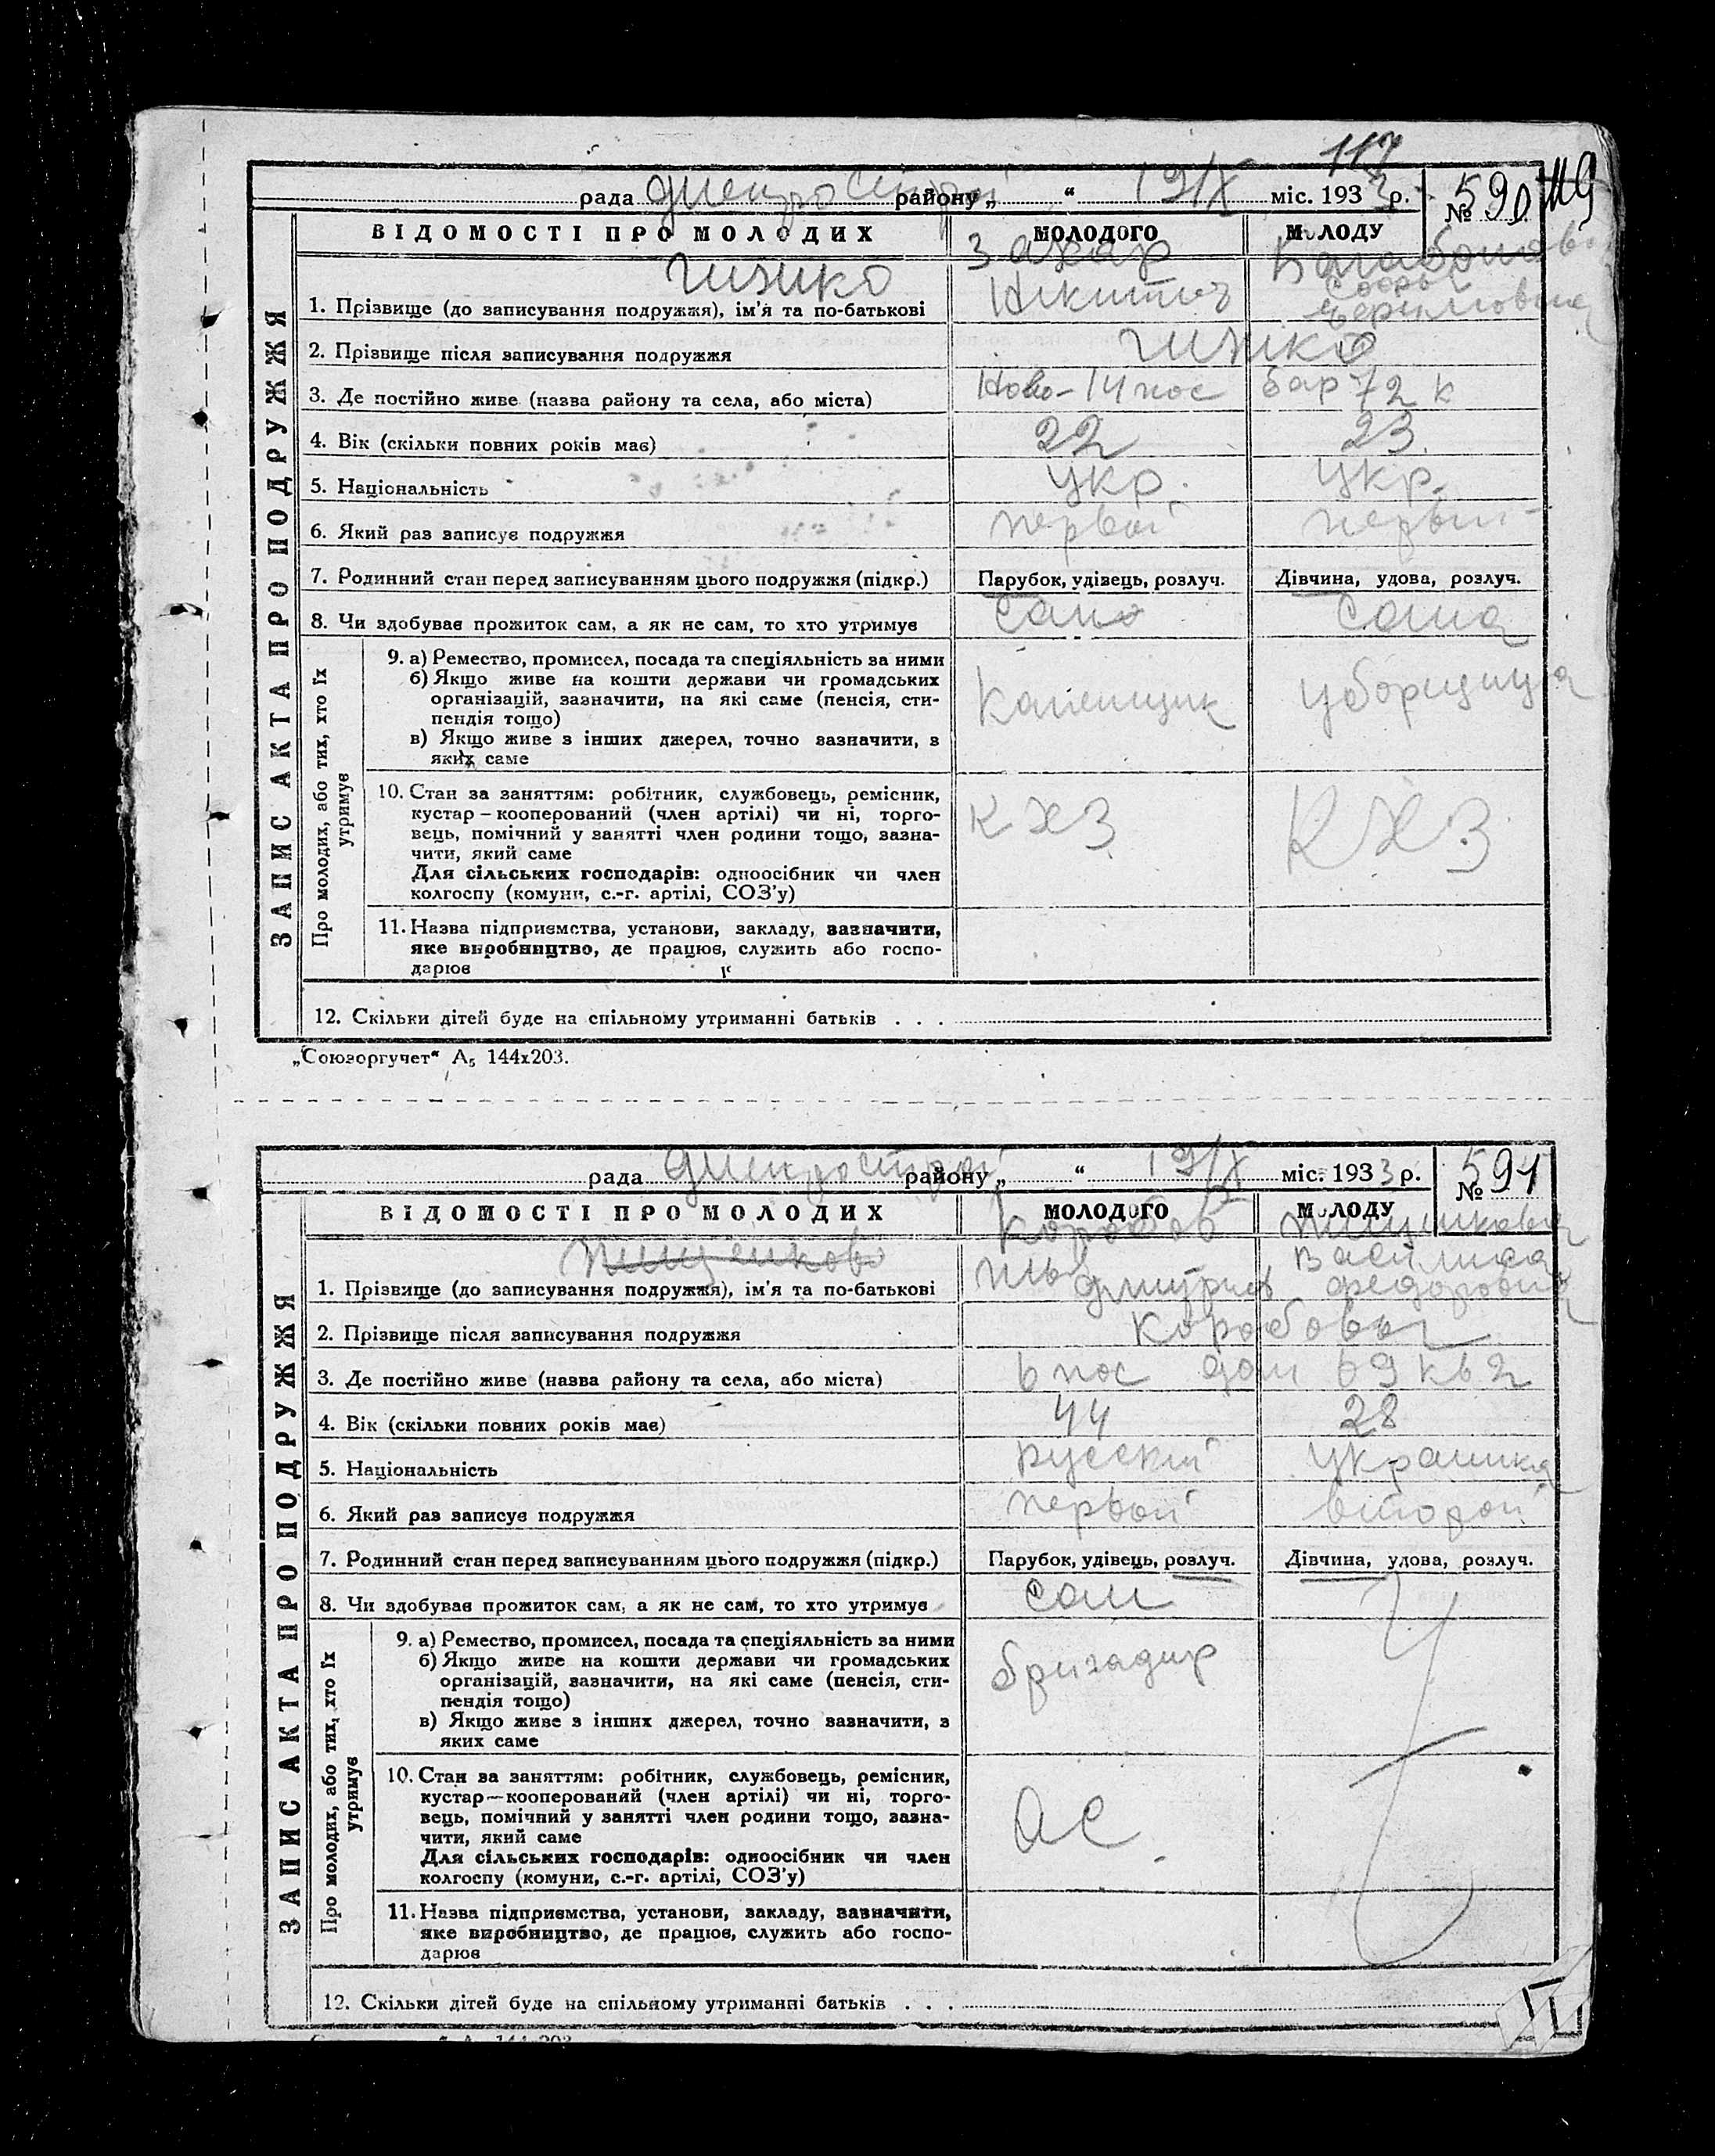 117
119
рада Днепрострой району „ “ 19/IX міс. 1933 р. № 590
ВІДОМОСТІ ПРО МОЛОДИХ МОЛОДОГО МОЛОДУ
ЗАПИС АКТА ПРО ПОДРУЖЖЯ
Захар
Никитич
1. Прізвище (до записування подружжя), ім'я та по-батькові
2. Прізвище після записування подружжя
3. Де постійно живе (назва району та села, або міста) Ново-14 пос бар 72 к
4. Вік (скільки повних років має) 22 23
5. Національність укр. укр.
6. Який раз записує подружжя первой первый
7. Родинний стан перед записуванням цього подружжя (підкр.) Парубок, удівець, розлуч. Дівчина, удова, розлуч.
8. Чи здобуває прожиток сам, а як не сам, то хто утримує сам сама
Про молодих, або тих, хто їх утримує
9. а) Ремество, промисел, посада та спеціяльність за ними
б) Якщо живе на кошти держави чи громадських
організацій, зазначити, на які саме (пенсія, сти-
пендія тощо)
в) Якщо живе з інших джерел, точно зазначити, з
яких саме
Каменщик уборщица
10. Стан за заняттям: робітник, службовець, ремісник,
кустар – кооперований (член артілі) чи ні, торго-
вець, помічний у занятті член родини тощо, зазна-
чити, який саме
Для сільських господарів: одноосібник чи член
колгоспу (комуни, с.-г. артілі, СОЗ'у)
КХЗ КХЗ
11. Назва підприємства, установи, закладу, зазначити,
яке виробництво, де працює, служить або госпо-
дарює
12. Скільки дітей буде на спільному утриманні батьків . . .
„Союзоргучет“ А5 144х203.
рада Днепрострой району „ “ 19/IX міс. 1933 р. № 591
ВІДОМОСТІ ПРО МОЛОДИХ МОЛОДОГО МОЛОДУ
ЗАПИС АКТА ПРО ПОДРУЖЖЯ
Коробов
Василиса
1. Прізвище (до записування подружжя), ім'я та по-батькові Дмитриев Федоровна
2. Прізвище після записування подружжя Коробовы
3. Де постійно живе (назва району та села, або міста) 6 пос дом 69 кв 2
4. Вік (скільки повних років має) 44 28
5. Національність русский украинка
6. Який раз записує подружжя первой второй
7. Родинний стан перед записуванням цього подружжя (підкр.) Парубок, удівець, розлуч. Дівчина, удова, розлуч.
8. Чи здобуває прожиток сам, а як не сам, то хто утримує сам
Про молодих, або тих, хто їх утримує
9. а) Ремество, промисел, посада та спеціяльність за ними
б) Якщо живе на кошти держави чи громадських
організацій, зазначити, на які саме (пенсія, сти-
пендія тощо)
в) Якщо живе з інших джерел, точно зазначити, з
яких саме
бригадир
10. Стан за заняттям: робітник, службовець, ремісник,
кустар—кооперований (член артілі) чи ні, торго-
вець, помічний у занятті член родини тощо, зазна-
чити, який саме
Для сільських господарів: одноосібник чи член
колгоспу (комуни, с.-г. артілі, СОЗ'у)
ас
11. Назва підприємства, установи, закладу, зазначити,
яке виробництво, де працює, служить або госпо-
дарює
12. Скільки дітей буде на спільному утриманні батьків . . .